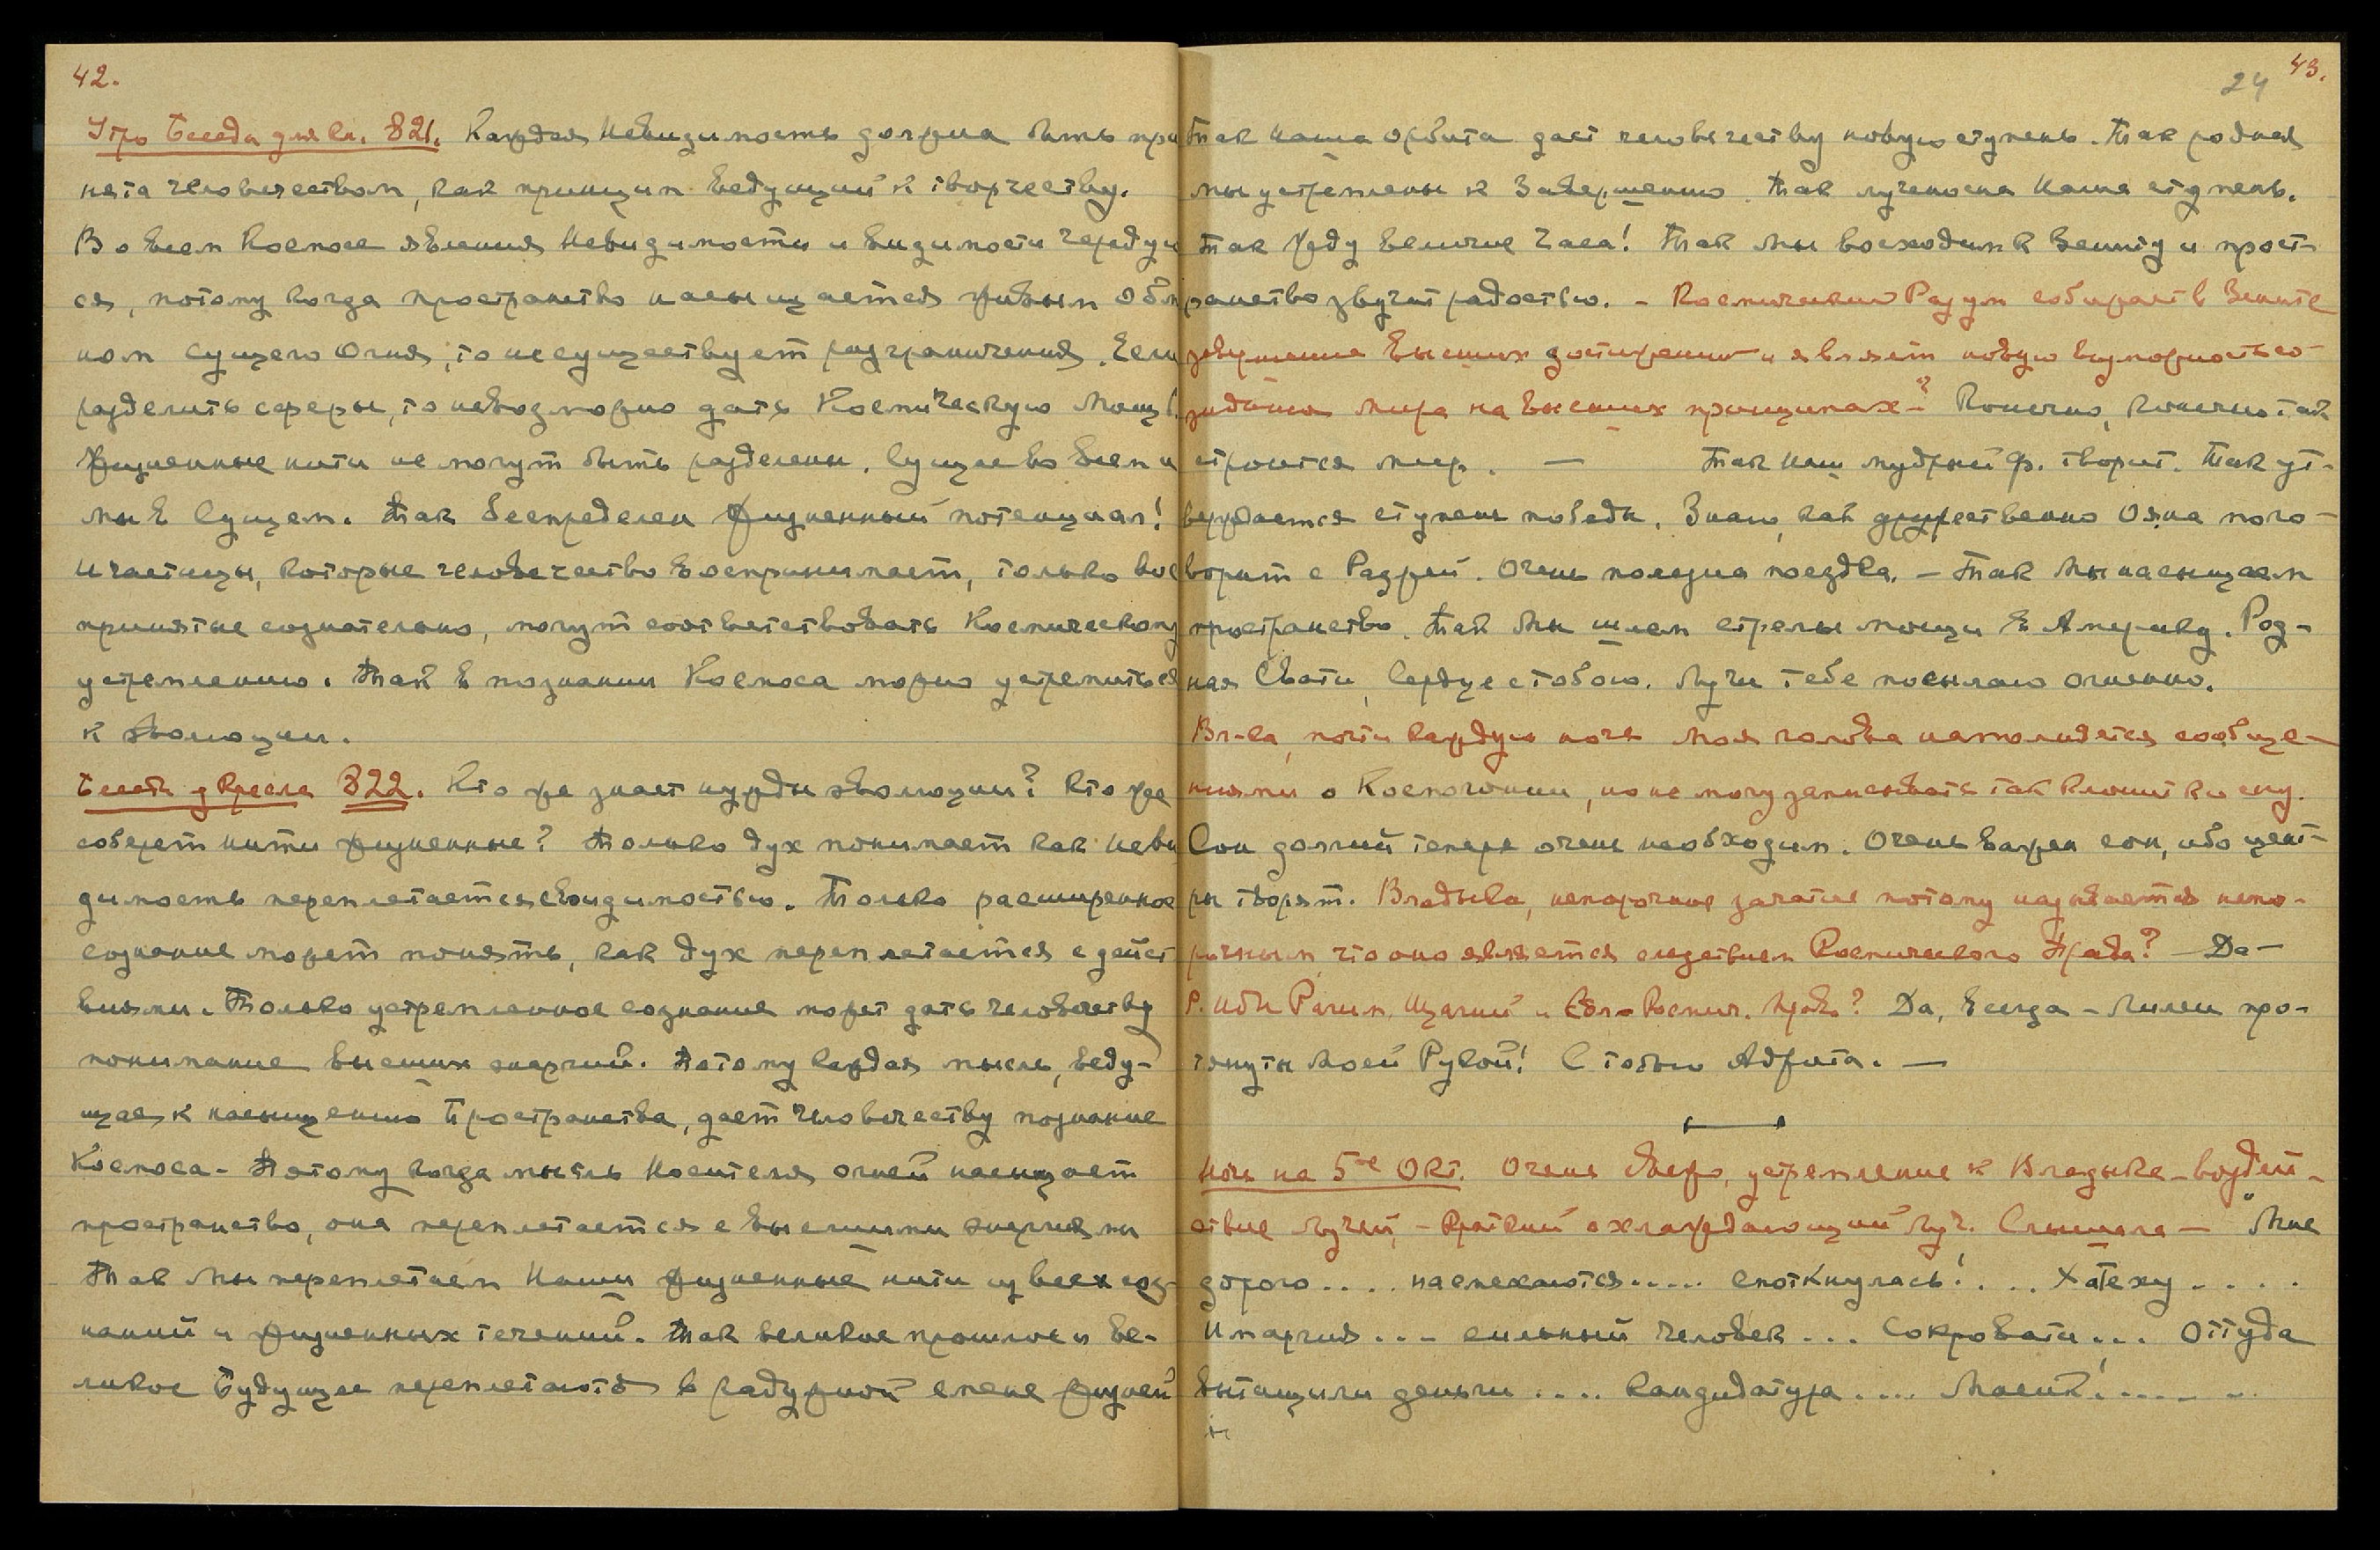 42.
Утро Беседа для кн. 821. Каждая Невидимость должна быть при
нята человечеством, как принцип ведущий к творчеству.
Во всем Космосе явления Невидимости и видимости чередую
ся, потому когда пространство насыщается живым
ном Сущего Огня, то не существует разграничения. Если
разделить сферы, то невозможно дать Космическую Мощь.
Жизненные нити не могут быть разделены. Сущее во всем и
мы в Сущем. Так беспределен жизненный потенциал!
И частицы, которые человечество воспринимает, только вос
принятые сознательно, могут соответствовать Космическому
устремлению. Так в познании Космоса можно устремиться
к эволюции.
Беседа у кресла 822. Кто же знает нужды эволюции? Кто же
соберет нити жизненные? Только дух понимает как Неви
димость переплетается с видимостью. Только расширенное
сознание может понять, как дух переплетается с дейст
виями. Только устремленное сознание может дать человечеству
понимание высших энергий. Потому каждая мысль, веду-
щая к насыщению Пространства, дает человечеству познание
Космоса - Потому когда мысль Носителя огней насыщает
пространство, она переплетается с высшими энергиями
Так Мы переплетаем Наши жизненные нити из всех соз-
наний и жизненных течений. Так великое прошлое и ве-
ликое Будущее переплетаются в радужной смене жизней
24 43.
Так Наша орбита дает человечеству новую ступень. Так родная
мы устремлены к Завершению. Так лученосна Наша ступень.
Так жду величие Часа! Так Мы восходим к Зениту и прост-
ранство звучит радостью. - Космический Разум собирает в Зените
завершение Высших достижений и являет новую возможность со-
зидания Мира на высших принципах-? Конечно, конечно так
строится мир. — Так Наш мудрый Ф. творит. Так ут-
верждается ступень победы. Знаю, как дружественно Ояна пого-
ворит с Радной. Очень полезна поездка. - Так Мы насыщаем
пространство. Так Мы шлем стрелы мощи в Америку. Род-
ная Свати, Сердце с тобою. Лучи тебе посылаю огненно.
Вл-ка, почти каждую ночь моя голова наполняется сообще-
ниями о Космогонии, но не могу записывать так клонит ко сну.
Сон долгий теперь очень необходим. Очень важен сон, ибо цент-
ры творят. Владыка, непорочное зачатие потому называется непо-
рочным, что оно является следствием Космического Права? - Да -
Да, всегда - Линии про-
тянуты Моей Рукой! С тобою Аджита. —
Ночь на 5-е Окт. Очень устремление к Владыке - воздей-
ствие лучей, - Краткий охлаждающий луч. Слышала — "Мне
дорого .... насмехаются ..... споткнулась! ... Хатежу ....
Имаргия ... сильный человек ... сокровати ... оттуда
вытащили деньги .... кандидатура .... Масик! ......